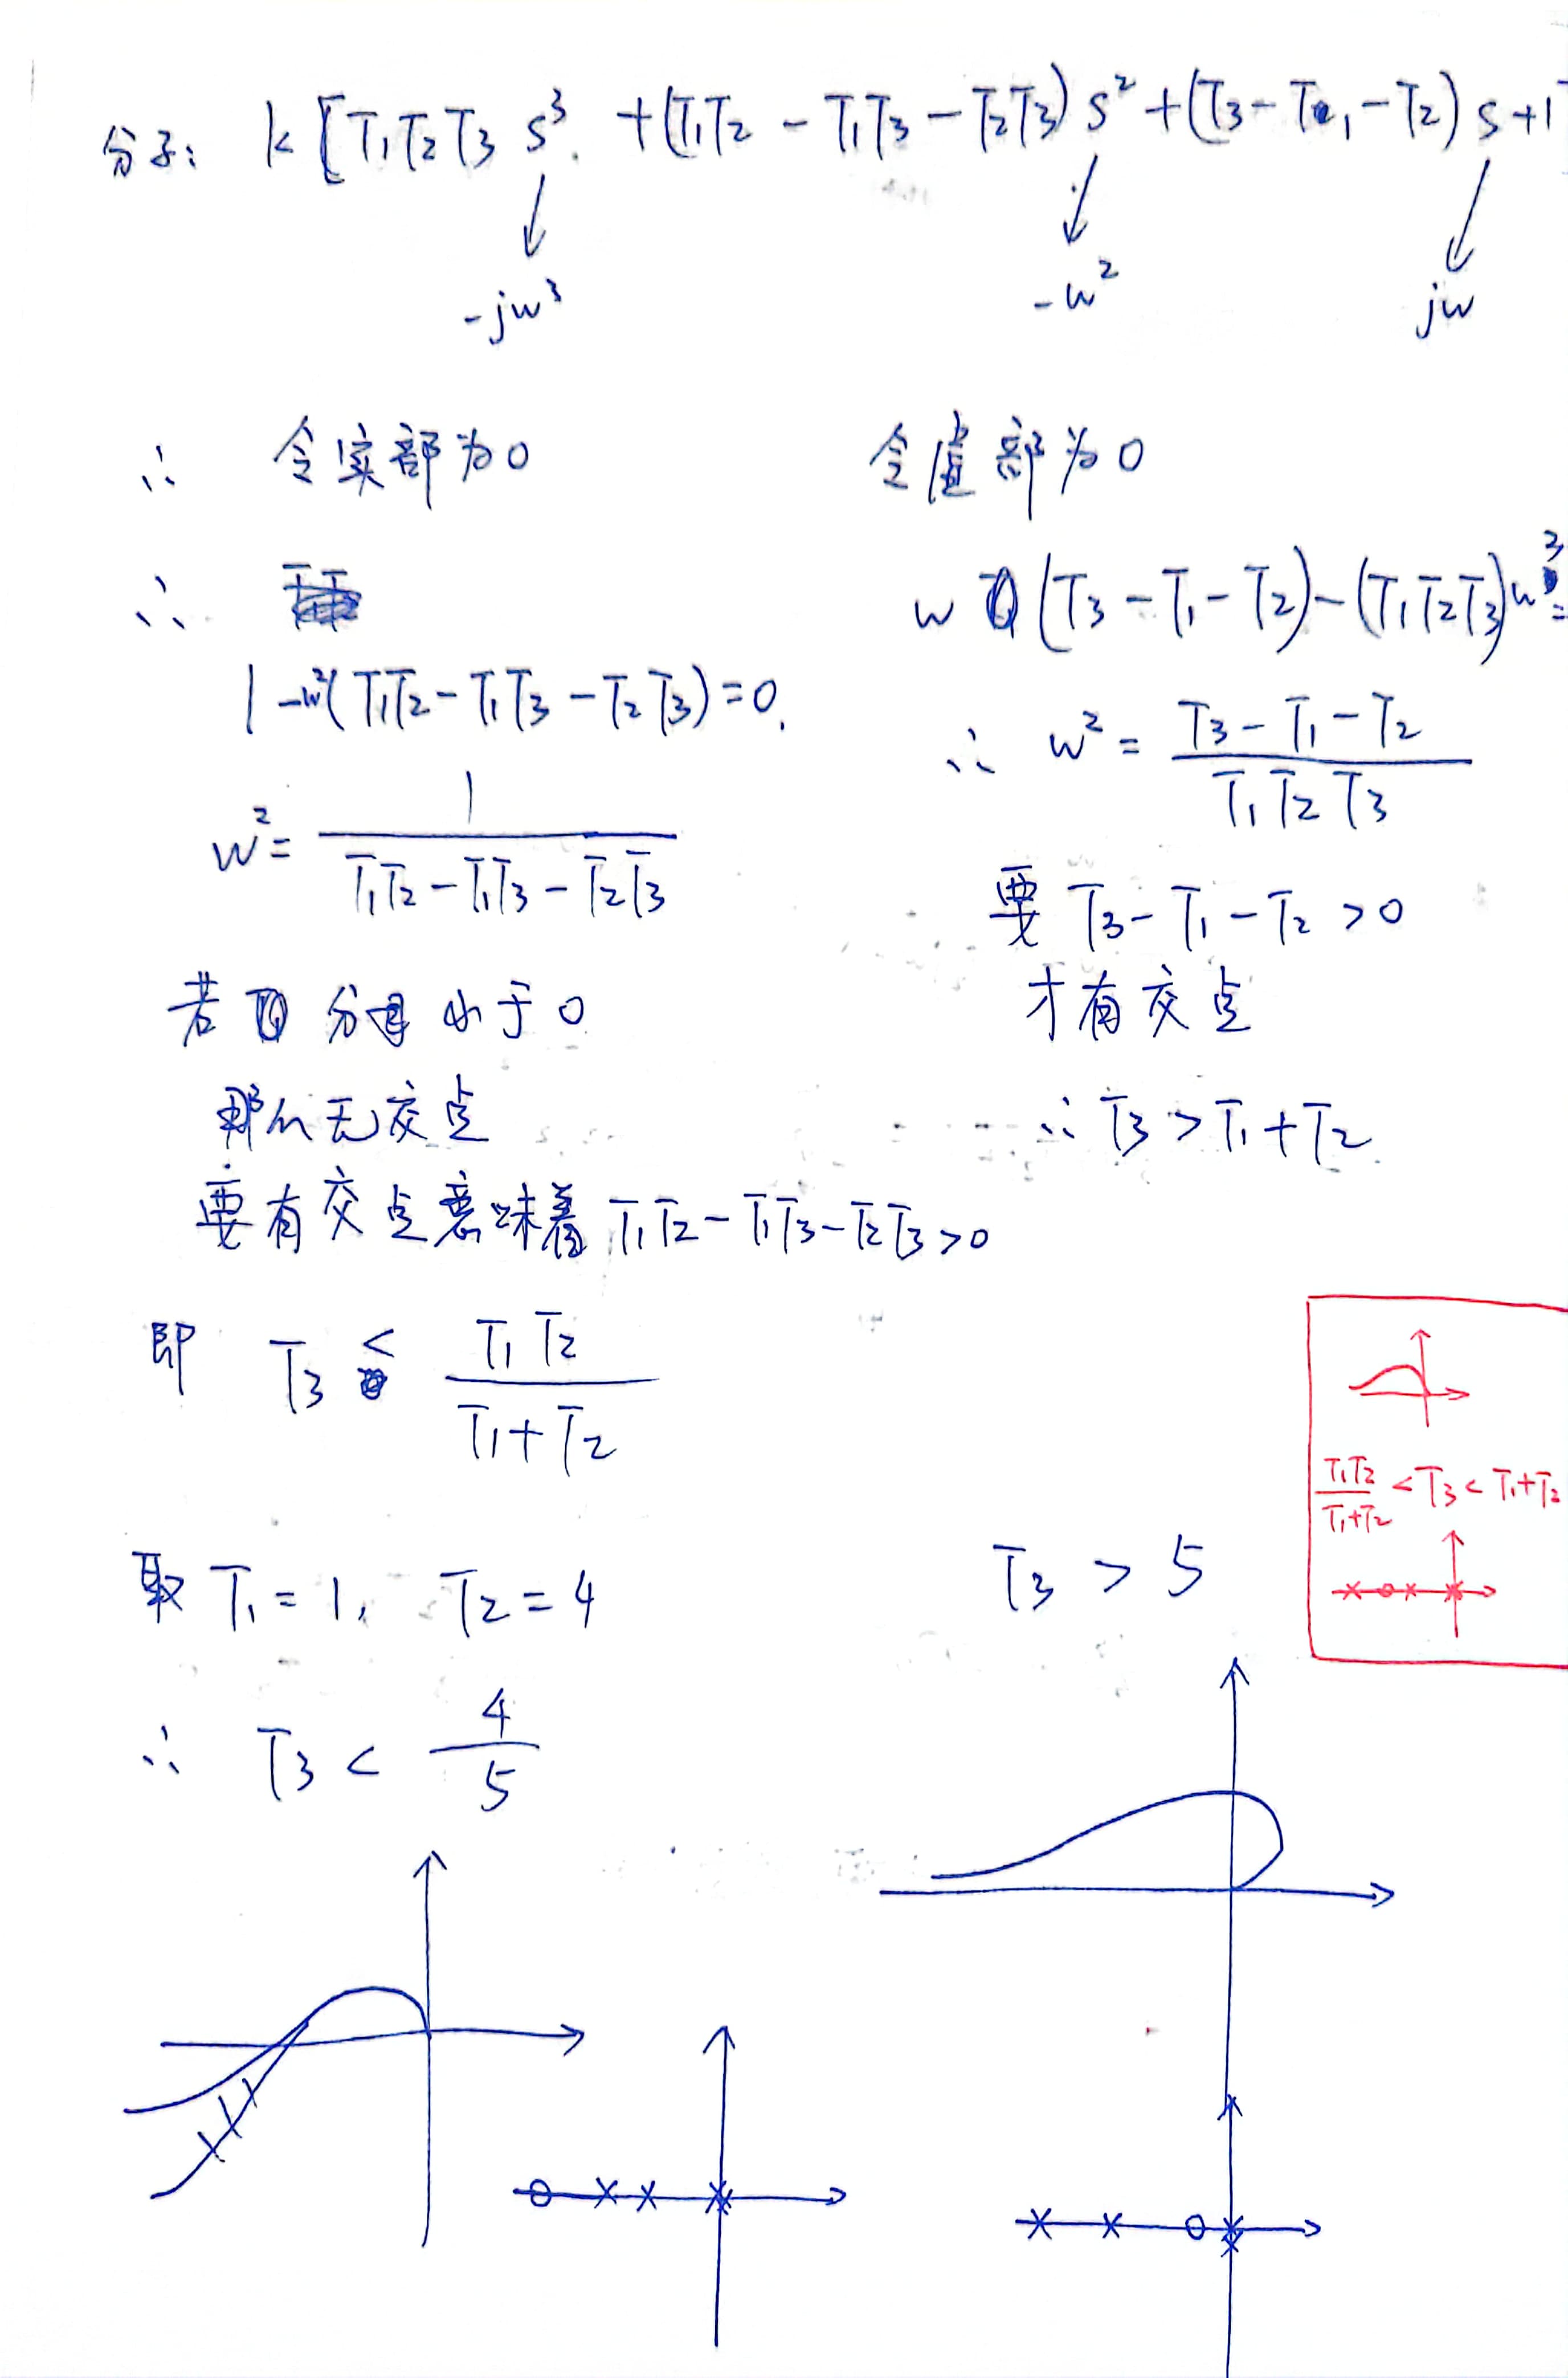 分子: k [T₁T₂T₃ s³ + (T₁T₂ - T₁T₃ - T₂T₃) s² + (T₃ - T₁ - T₂) s + 1
-jw³ -w² jw
∴ 令实部为0
∴
1 - w²(T₁T₂ - T₁T₃ - T₂T₃) = 0.
w² = 1 / (T₁T₂ - T₁T₃ - T₂T₃)
若 分母小于0
那么无交点
要有交点意味着 T₁T₂ - T₁T₃ - T₂T₃ > 0
即 T₃ < T₁T₂ / (T₁ + T₂)
取 T₁ = 1, T₂ = 4
∴ T₃ < 4/5
令虚部为0
w (T₃ - T₁ - T₂) - (T₁T₂T₃) w³ =
∴ w² = (T₃ - T₁ - T₂) / (T₁T₂T₃)
要 T₃ - T₁ - T₂ > 0
才有交点
∴ T₃ > T₁ + T₂
T₃ > 5
T₁T₂ / (T₁+T₂) < T₃ < T₁+T₂